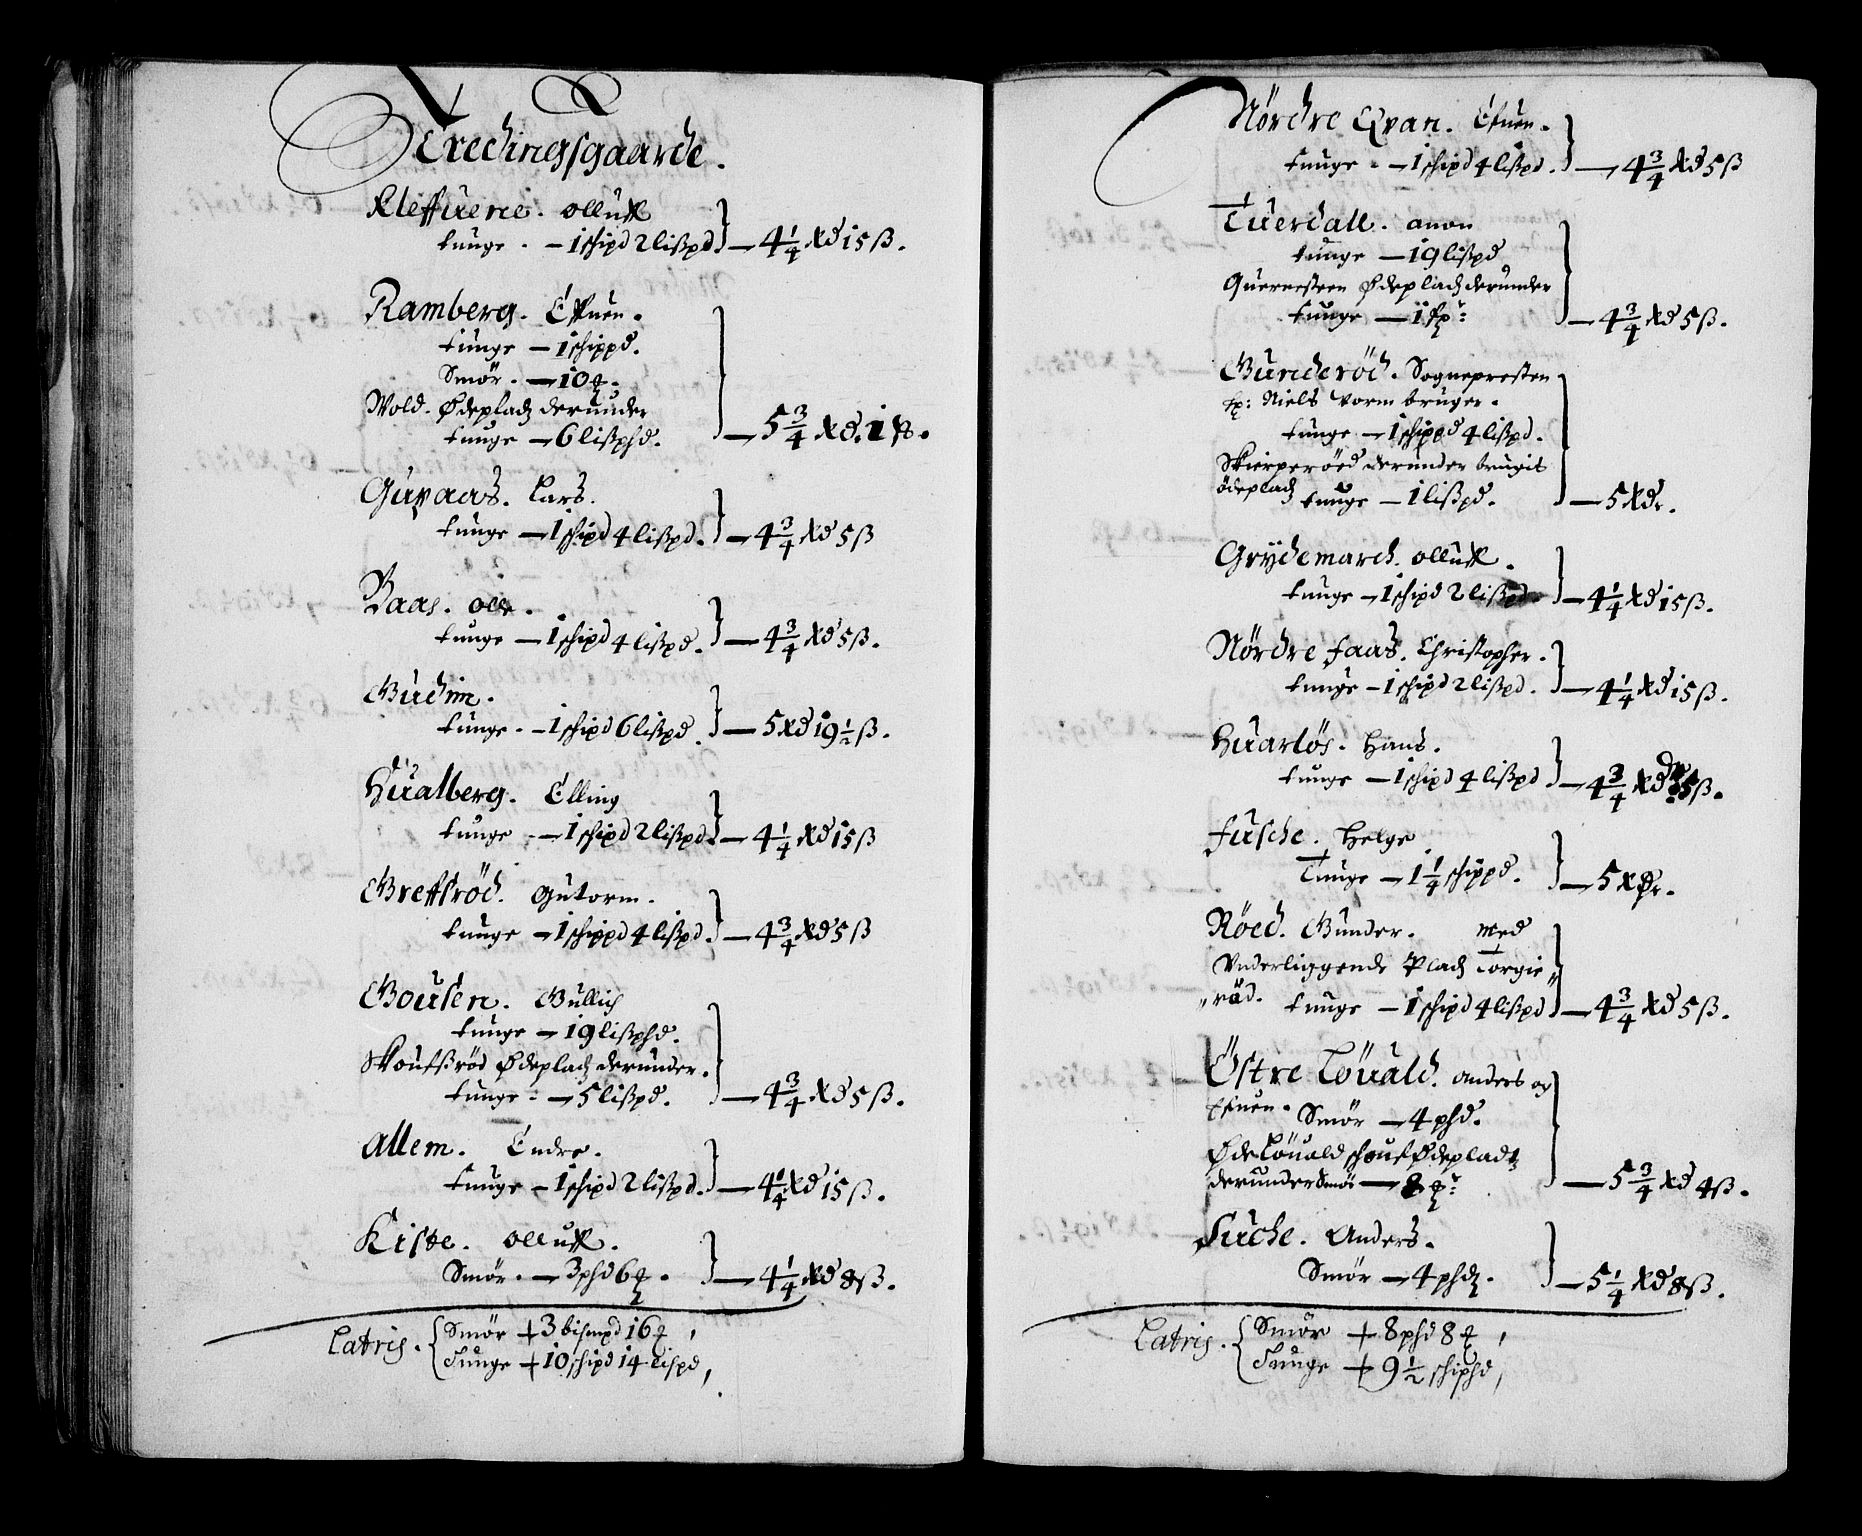 Tredingsgaarde.
Kleffuene. Olluff
tunge - 1 schipd 2 lißpd - 4 1/4 Rd 15 ß.
Ramberg. Effuen.
tunge - 1 schippd.
Smør. - 10
Wold. Ødepladz derunder
tunge - 6 lißphd. - 5 3/4 Rd. 1 ß.
Guvaas. Lars.
tunge - 1 schipd 4 lißpd. - 4 3/4 Rd 5 ß
Baas. Olle.
tunge - 1 schipd 4 lißpd. - 4 3/4 Rd 5 ß.
Gudim.
tunge. - 1 schipd 6 lißpd - 5 Rd 19 1/2 ß.
Hualberg. Elling
tunge - 1 schipd 2 lißpd. - 4 1/4 Rd 15 ß
Greffsröd. Gutorm.
tunge - 1 schippd 4 lißpd. - 4 3/4 Rd 5 ß
Gousen. Gullich
tunge - 19 lißphd.
Skoufßröd Ødepladz derunder.
tunge - 5 lißpd. - 4 3/4 Rd 5 ß.
Allem. Endre.
tunge - 1 schipd 2 lißpd. - 4 1/4 Rd 15 ß.
Kiste. Olluff.
Smør. - 3 phd 6 . - 4 1/4 Rd 8 ß.
Latris. Smør + 3 bismpd 16
Tunge + 10 schipd 14 lispd,
Nördre Qvan. Efuen.
tunge - 1 schipd 4 lißpd. - 4 3/4 Rd 5 ß
Tuerdall. Anon
tunge - 19 lißpd
Quernesteen Ødepladz derunder
tunge - 1 - 4 3/4 Rd 5 ß.
Gunderöd. Sognepresten
Niels Vorm bruger.
tunge - 1 schippd 4 lißpd.
Skierperöed derunder brugit
ödepladz tunge - 1 lißpd. - 5 Rdr.
Grydemarch. Olluff.
tunge - 1 schipd 2 lißpd - 4 1/4 Rd 15 ß.
Nördre Faas. Christopher.
tunge - 1 schipd 2 lißpd. - 4 1/4 Rd 15 ß.
Huarlös. Hans.
tunge - 1 schipd 4 lißpd - 4 3/4 Rd 5 ß.
Fusche. Helge
Tunge - 1 1/4 schippd. - 5 Rdr.
Röed. Gunder. Med
Vnderliggende Pladz Torgie„
„röd. tunge - 1 schipd 4 lißpd - 4 3/4 Rd 5 ß.
Östre Löuald. Anders og
Efuen. Smör - 4 phd.
Øde Löuald schouf Ødepladtz
derunder Smör - 8 - 5 3/4 Rd 4 ß.
Furche. Anders.
Smör - 4 phd. - 5 1/4 Rd 8 ß.
Latris. Smör + 8 phd 8
Tunge + 9 1/2 schiphd,